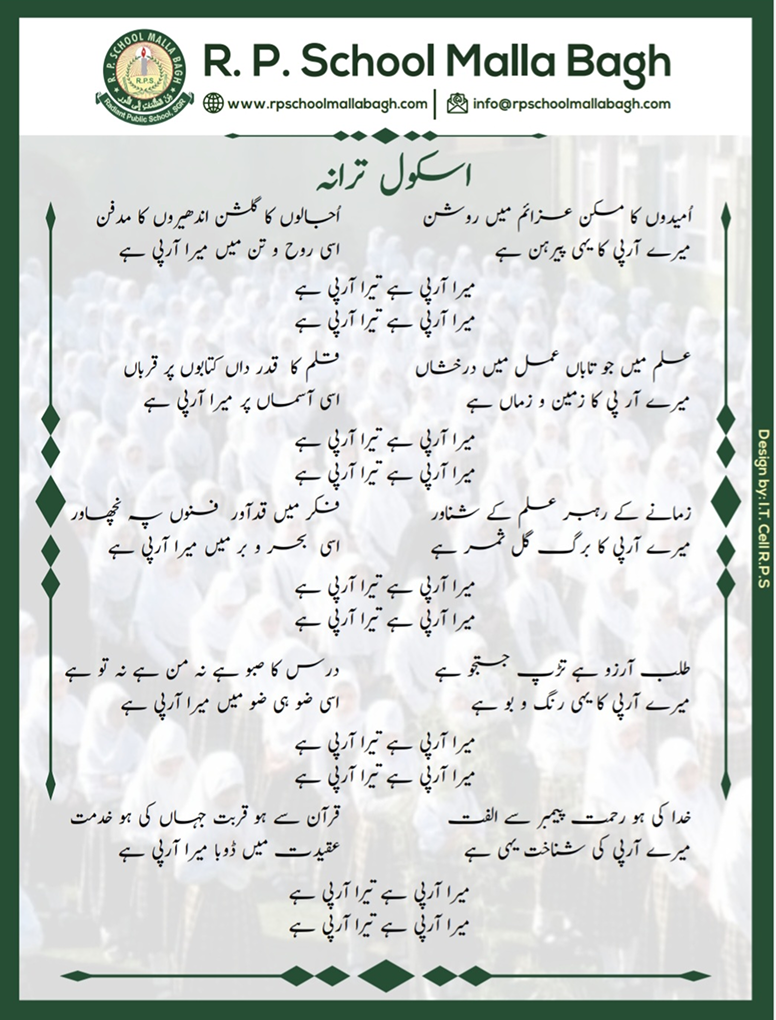 R. P. SCHOOL MALLA BAGH
R.P.S.
Radiant Public School, SGR
R. P. School Malla Bagh
www.rpschoolmallabagh.com | info@rpschoolmallabagh.com
اسکول ترانہ
اُمیدوں کا مسکن عزائم میں روشن اُجالوں کا گلشن اندھیروں کا مدفن
میرے آرپی کا یہی پیرہن ہے اسی روح و تن میں میرا آرپی ہے
میرا آرپی ہے تیرا آرپی ہے
میرا آرپی ہے تیرا آرپی ہے
علم میں جو تاباں عمل میں درخشاں قلم کا قدر داں کتابوں پر قرباں
میرے آر پی کا زمین و زماں ہے اسی آسماں پر میرا آرپی ہے
میرا آرپی ہے تیرا آرپی ہے
میرا آرپی ہے تیرا آرپی ہے
زمانے کے رہبر علم کے شناور فکر میں قدآور فنوں پہ نچھاور
میرے آرپی کا برگ گل ثمر ہے اسی بحر و بر میں میرا آرپی ہے
میرا آرپی ہے تیرا آرپی ہے
میرا آرپی ہے تیرا آرپی ہے
طلب آرزو ہے تڑپ جستجو ہے درس کا صبو ہے نہ من ہے نہ تو ہے
میرے آرپی کا یہی رنگ و بو ہے اسی ضو ہی ضو میں میرا آرپی ہے
میرا آرپی ہے تیرا آرپی ہے
میرا آرپی ہے تیرا آرپی ہے
خدا کی ہو رحمت پیمبر سے الفت قرآن سے ہو قربت جہاں کی ہو خدمت
میرے آرپی کی شناخت یہی ہے عقیدت میں ڈوبا میرا آرپی ہے
میرا آرپی ہے تیرا آرپی ہے
میرا آرپی ہے تیرا آرپی ہے
Design by: I.T. Cell R.P.S